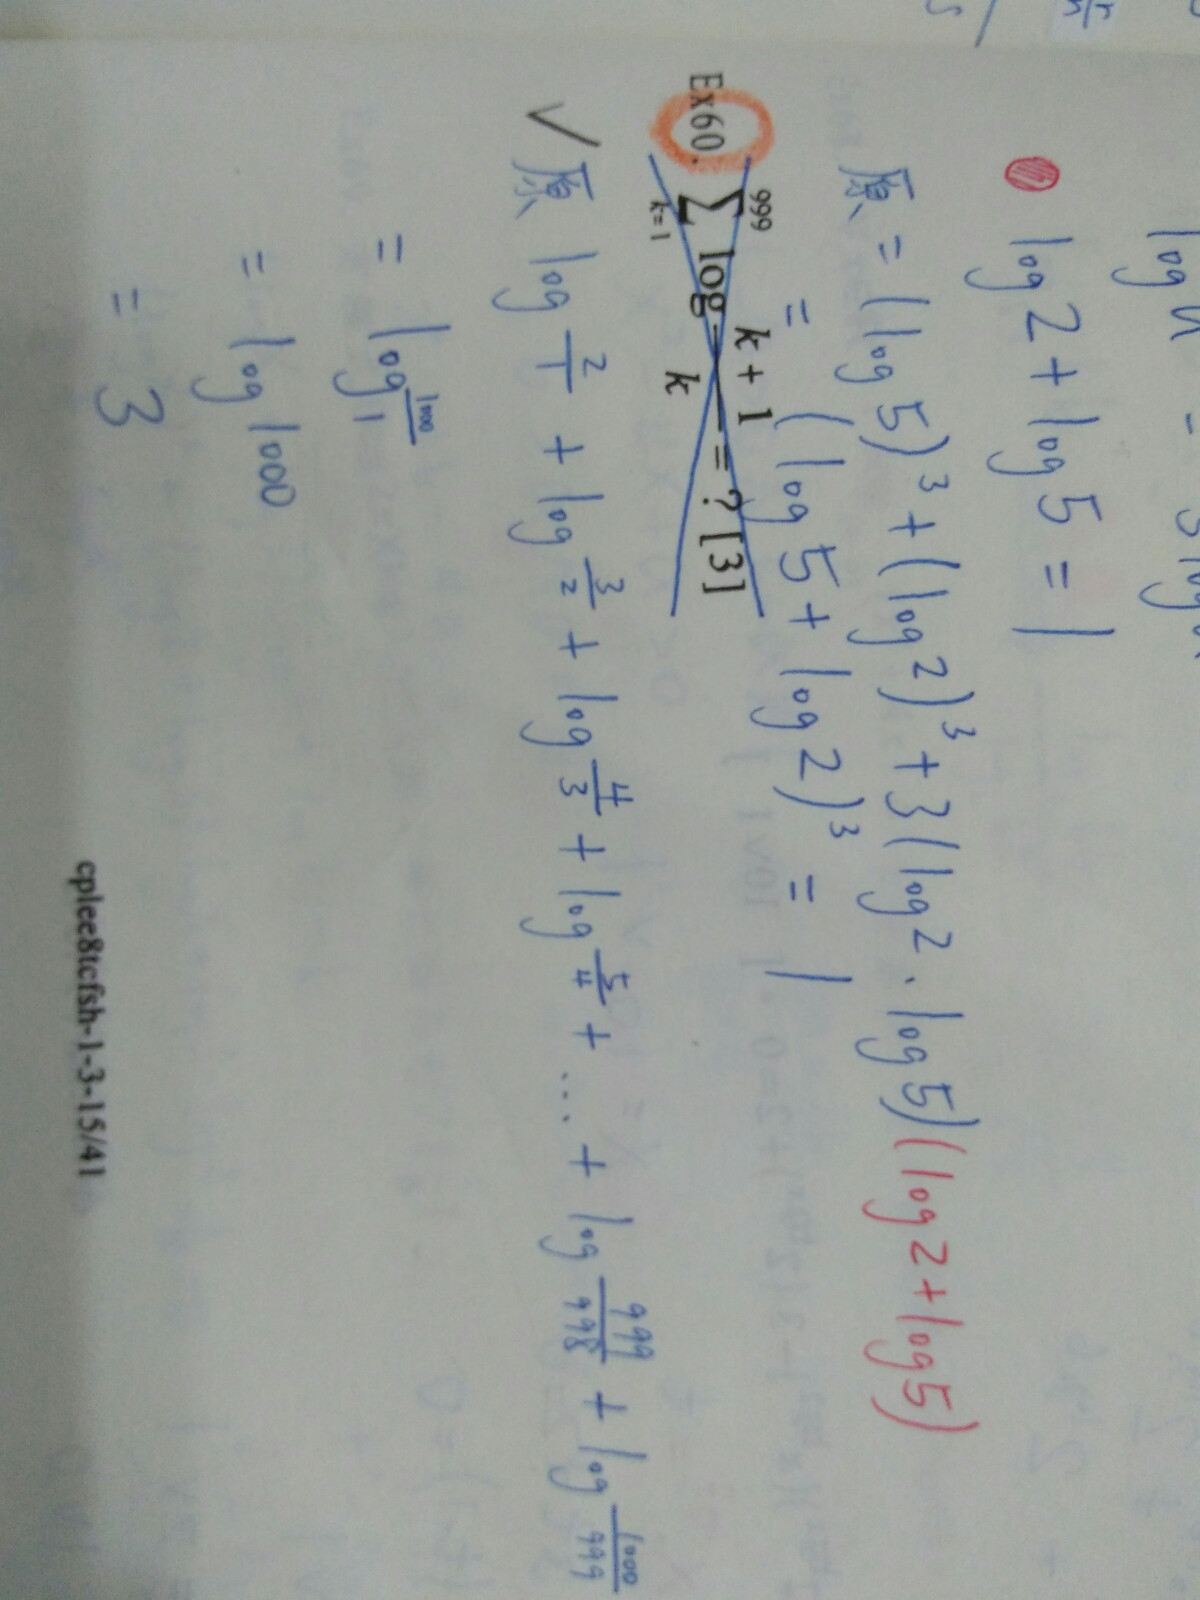 log 2 + log 5 = 1
原 = (log 5)³ + (log 2)³ + 3(log 2 · log 5)(log 2 + log 5)
= (log 5 + log 2)³ = 1
Ex60. ∑_{k=1}^{999} log (k+1)/k = ? [3]
✓ 原 log 2/1 + log 3/2 + log 4/3 + log 5/4 + ... + log 999/998 + log 1000/999
= log 1000/1
= log 1000
= 3
cplee8tcfsh-1-3-15/41